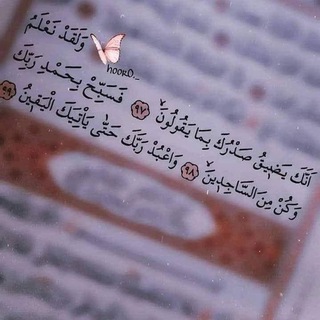 وَلَقَدْ نَعْلَمُ
hoorD_
أَنَّكَ يَضِيقُ صَدْرُكَ بِمَا يَقُولُونَ ٩٧ فَسَبِّحْ بِحَمْدِ رَبِّكَ
وَكُن مِّنَ السَّاجِدِينَ ٩٨ وَاعْبُدْ رَبَّكَ حَتَّىٰ يَأْتِيَكَ الْيَقِينُ ٩٩